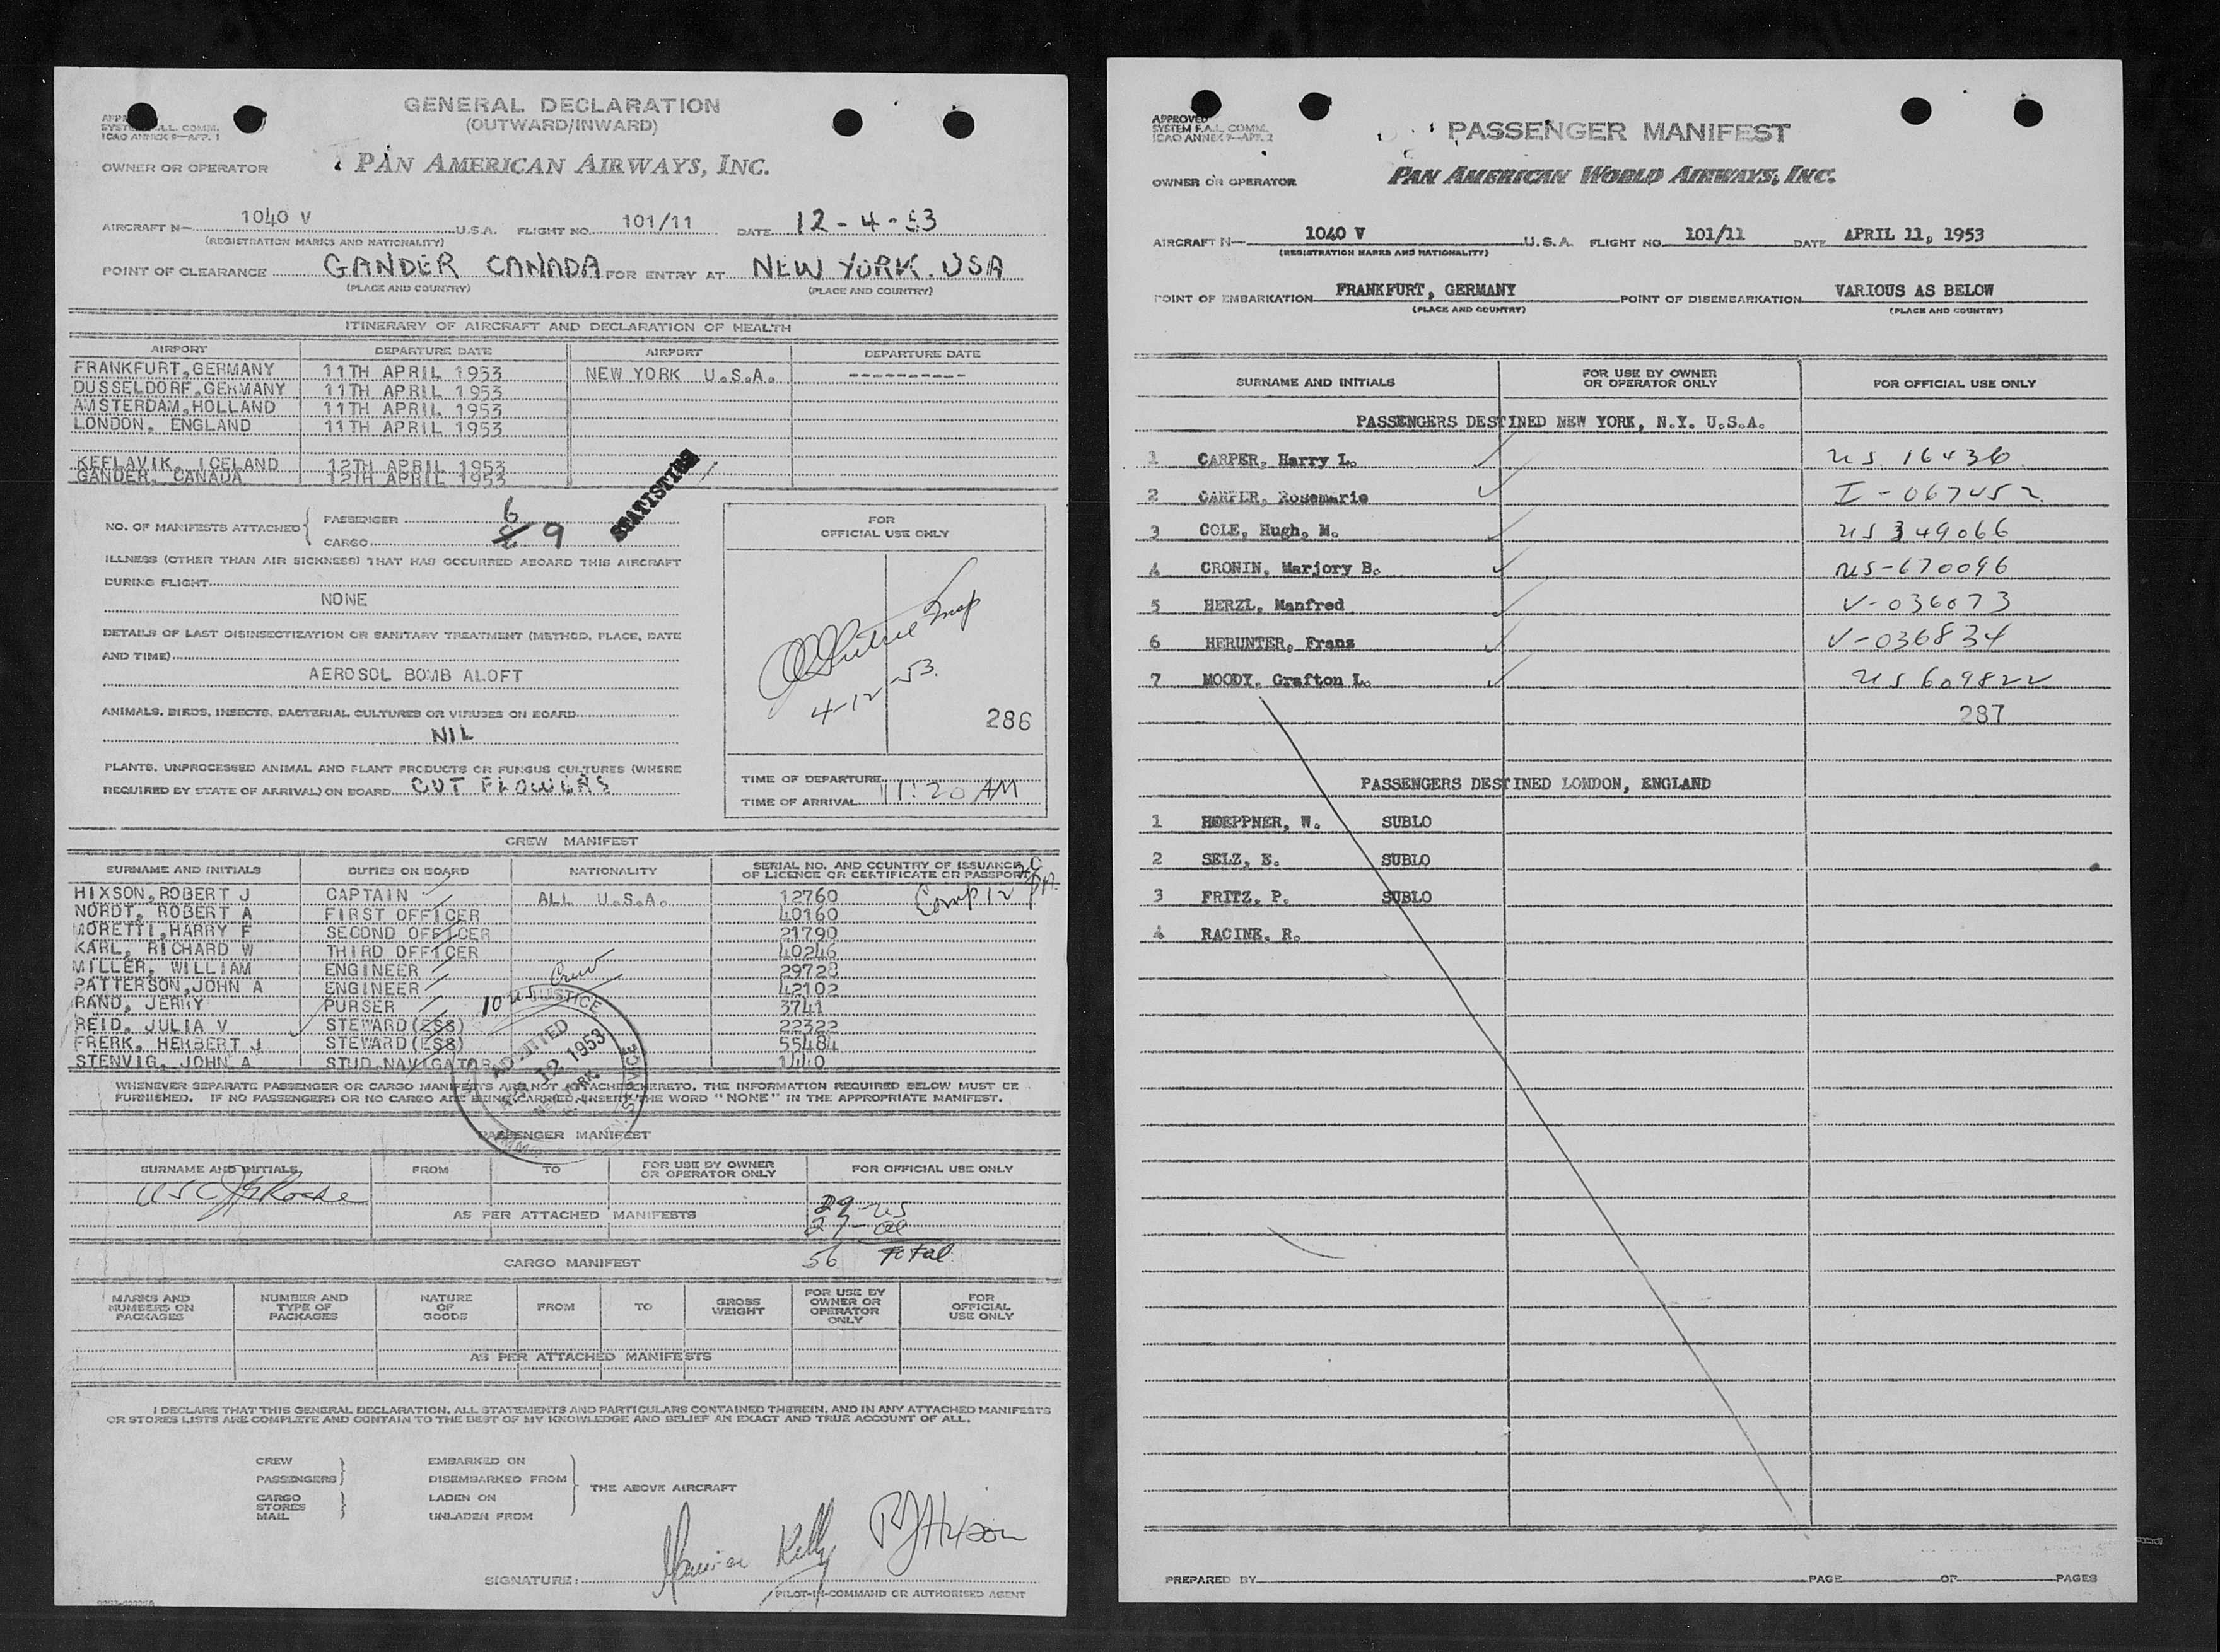 GENERAL DECLARATION
(OUTWARD/INWARD)
ICAO ANNEX 9—APP. 1
OWNER OR OPERATOR PAN AMERICAN AIRWAYS, INC.
AIRCRAFT N— 1040 V U.S.A. FLIGHT NO. 101/11 DATE 12-4-53
(REGISTRATION MARKS AND NATIONALITY)
POINT OF CLEARANCE GANDER CANADA FOR ENTRY AT NEW YORK. USA
(PLACE AND COUNTRY) (PLACE AND COUNTRY)
ITINERARY OF AIRCRAFT AND DECLARATION OF HEALTH
AIRPORT DEPARTURE DATE AIRPORT DEPARTURE DATE
FRANKFURT, GERMANY 11TH APRIL 1953 NEW YORK U.S.A. ----------
DUSSELDORF, GERMANY 11TH APRIL 1953
AMSTERDAM, HOLLAND 11TH APRIL 1953
LONDON, ENGLAND 11TH APRIL 1953
KEFLAVIK, ICELAND 12TH APRIL 1953
GANDER, CANADA 12TH APRIL 1953
STATISTICS
NO. OF MANIFESTS ATTACHED { PASSENGER 6
CARGO 9
FOR
OFFICIAL USE ONLY
ILLNESS (OTHER THAN AIR SICKNESS) THAT HAS OCCURRED ABOARD THIS AIRCRAFT
DURING FLIGHT
NONE
DETAILS OF LAST DISINSECTIZATION OR SANITARY TREATMENT (METHOD, PLACE, DATE
AND TIME)
AEROSOL BOMB ALOFT
Insp
4-12-53.
286
ANIMALS, BIRDS, INSECTS, BACTERIAL CULTURES OR VIRUSES ON BOARD
NIL
PLANTS, UNPROCESSED ANIMAL AND PLANT PRODUCTS OR FUNGUS CULTURES (WHERE
REQUIRED BY STATE OF ARRIVAL) ON BOARD CUT FLOWERS
TIME OF DEPARTURE
TIME OF ARRIVAL 11:20 AM
CREW MANIFEST
SURNAME AND INITIALS DUTIES ON BOARD NATIONALITY SERIAL NO. AND COUNTRY OF ISSUANCE
OF LICENCE OR CERTIFICATE OR PASSPORT
HIXSON, ROBERT J CAPTAIN ALL U.S.A. 12760 Comp 12
NORDT, ROBERT A FIRST OFFICER 40160
MORETTI, HARRY F SECOND OFFICER 21790
KARL, RICHARD W THIRD OFFICER 40246
MILLER, WILLIAM ENGINEER 29728
PATTERSON, JOHN A ENGINEER 42102
RAND, JERRY PURSER 3741
REID, JULIA V STEWARD(ESS) 22322
FRERK, HERBERT J STEWARD(ESS) 55484
STENVIG, JOHN A STUD.NAVIGATOR 1440
10 US Crew
JUSTICE
ADMITTED
12 1953
NEW YORK
SERVICE
WHENEVER SEPARATE PASSENGER OR CARGO MANIFESTS ARE NOT ATTACHED HERETO, THE INFORMATION REQUIRED BELOW MUST BE
FURNISHED. IF NO PASSENGERS OR NO CARGO ARE BEING CARRIED, INSERT THE WORD "NONE" IN THE APPROPRIATE MANIFEST.
PASSENGER MANIFEST
SURNAME AND INITIALS FROM TO FOR USE BY OWNER
OR OPERATOR ONLY FOR OFFICIAL USE ONLY
AS PER ATTACHED MANIFESTS
29-US
27-
56 Total
CARGO MANIFEST
MARKS AND
NUMBERS ON
PACKAGES NUMBER AND
TYPE OF
PACKAGES NATURE
OF
GOODS FROM TO GROSS
WEIGHT FOR USE BY
OWNER OR
OPERATOR
ONLY FOR
OFFICIAL
USE ONLY
AS PER ATTACHED MANIFESTS
I DECLARE THAT THIS GENERAL DECLARATION, ALL STATEMENTS AND PARTICULARS CONTAINED THEREIN, AND IN ANY ATTACHED MANIFESTS
OR STORES LISTS ARE COMPLETE AND CONTAIN TO THE BEST OF MY KNOWLEDGE AND BELIEF AN EXACT AND TRUE ACCOUNT OF ALL.
CREW } EMBARKED ON }
PASSENGERS } DISEMBARKED FROM } THE ABOVE AIRCRAFT
CARGO } LADEN ON }
STORES
MAIL } UNLADEN FROM
SIGNATURE: Maurice Kelly RJHixson
PILOT-IN-COMMAND OR AUTHORISED AGENT
APPROVED
SYSTEM F.A.L. COMM.
ICAO ANNEX 9—APP. 2
PASSENGER MANIFEST
OWNER OR OPERATOR PAN AMERICAN WORLD AIRWAYS, INC.
AIRCRAFT N— 1040 V U.S.A. FLIGHT NO. 101/11 DATE APRIL 11, 1953
(REGISTRATION MARKS AND NATIONALITY)
POINT OF EMBARKATION FRANKFURT, GERMANY POINT OF DISEMBARKATION VARIOUS AS BELOW
(PLACE AND COUNTRY) (PLACE AND COUNTRY)
SURNAME AND INITIALS FOR USE BY OWNER
OR OPERATOR ONLY FOR OFFICIAL USE ONLY
PASSENGERS DESTINED NEW YORK, N.Y. U.S.A.
1 CARPER, Harry L. US 16436
2 CARPER, Rosemarie I-067452
3 COLE, Hugh, M. US 349066
4 CRONIN, Marjory B. US-670096
5 HERZL, Manfred V-036073
6 HERUNTER, Franz V-036834
7 MOODY, Grafton L. US 609822
287
PASSENGERS DESTINED LONDON, ENGLAND
1 HOEPPNER, W. SUBLO
2 SELZ, E. SUBLO
3 FRITZ, P. SUBLO
4 RACINE, R.
PREPARED BY PAGE OF PAGES